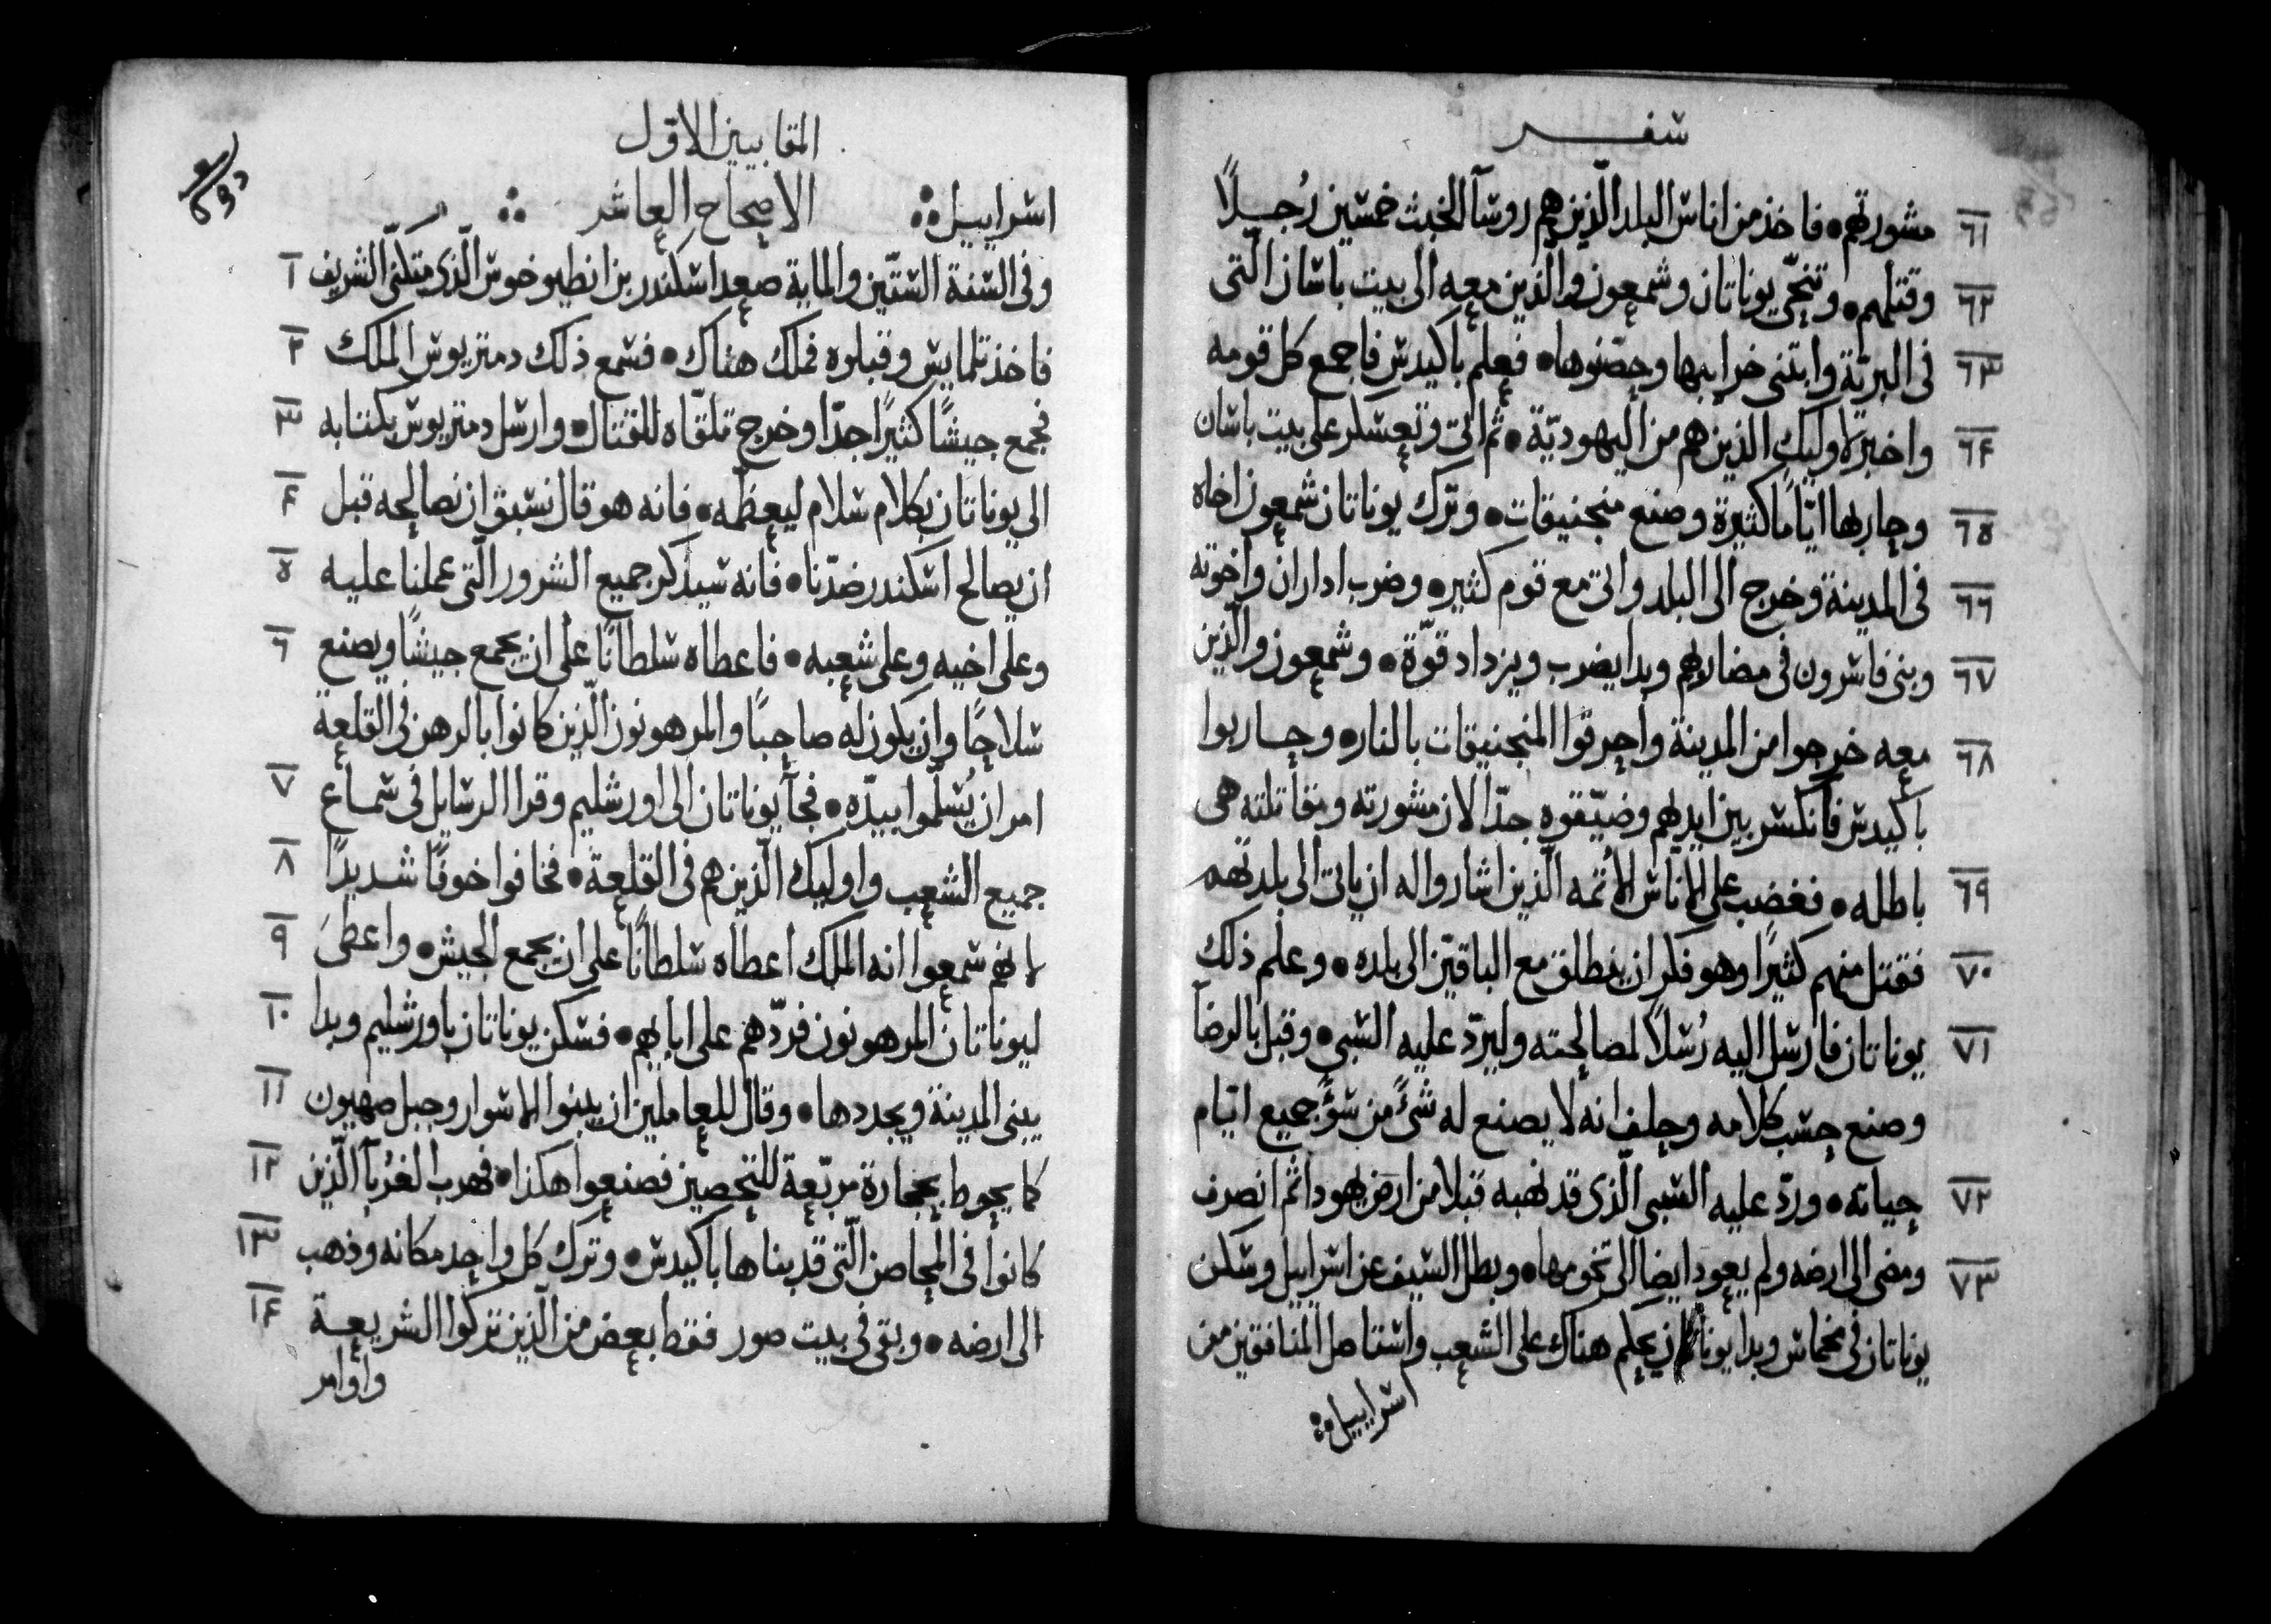 سفر
٦١ مشورتهم • فاخذ من اناس البلد الّذين هم روسآ الخبث خمسين رُجلاً
٦٢ وقتلهم • وتنحّى يوناتان وشمعون والّذين معه الى بيت باسان الّتى
٦٣ فى البريّة وابتنى خرايبها وحصّنوها • فعلم باكيدس فاجمع كل قومه
٦٤ واخبر لاوليك الذين هم من اليهوديّة • ثم اتى وتعسكر على بيت باسان
٦٥ وحاربها ايّامًا كثيرة وصنع منجنيقات • وترك يوناتان شمعون اخاه
٦٦ فى المدينة وخرج الى البلد واتى مع قوم كثير • وضرب اداران واخوته
٦٧ وبنى فاسرون فى مضاربهم وبدا يضرب ويزداد قوّة • وشمعون والّذين
٦٨ معه خرجوا من المدينة واحرقوا المنجنيقات بالنار • وحاربوا
باكيدس فانكسر بين ايديهم وضيّقوه جدّا لان مشورته ومقاتلته هى
٦٩ باطله • فغضب على الاناس الاثمه الّذين اشاروا له ان ياتى الى بلدتهم
٧٠ فقتل منهم كثيرًا وهو فكر ان ينطلق مع الباقيّن الى بلده • وعلم ذلك
٧١ يوناتان فارسل اليه رُسلاً لمصالحته وليردّ عليه السبى • وقبل بالرضآ
وصنع حسب كلامه وحلف انه لا يصنع له شىً من سوًّ جميع ايّام
٧٢ حياته • وردّ عليه السبى الّذى قد نهبه قبلا من ارض يهودا ثم انصرف
٧٣ ومضى الى ارضه ولم يعود ايضا الى تخومها • وبطل السيف عن اسراييل وسكن
يوناتان فى مخماس وبدا يوناتان يحكم هناك على الشعب واستاصل المنافقين من
اسراييل
المقابيين الاوّل
اسراييل ⁘ الاصحاح العاشر ⁘
١ وفى السنة الستّين والماية صعد اسكندر بن انطيوخوس الّذى متكنّى الشريف
٢ فاخذ تلمايس وقبلوه فملك هناك • فسمع ذلك دمتريوس الملك
٣ فجمع جيشًا كثيرًا جدّا وخرج تلقّاه للقتال • وارسل دمتريوس بكتابه
٤ الى يوناتان بكلام سلام ليعظّمه • فانه هو قال نسبق ان نصالحه قبل
٥ ان يصالح اسكندر ضدّنا • فانه سيذكر جميع الشرور الّتى عملنا عليه
٦ وعلى اخيه وعلى شعبه • فاعطاه سلطانًا على ان يجمع جيشًا ويصنع
سلاحًا وان يكون له صاحبًا والمرهونون الّذين كانوا بالرهن فى القلعة
٧ امر ان يُسلّموا بيدّه • فجآ يوناتان الى اورشليم وقرا الرسايل فى سماع
٨ جميع الشعب واوليك الّذين هم فى القلعة • فخافوا خوفًا شديدًا
٩ لانهم سمعوا انه الملك اعطاه سلطانًا على ان يجمع الجيش • واعطىَ
١٠ ليوناتان المرهونون فردّهم على ابايهم • فسكن يوناتان باورشليم وبدا
١١ يبنى المدينة ويجددها • وقال للعاملين ان يبنوا الاسوار وجبل صهيون
١٢ كما يحوط بحجارة مربّعة للتحصين فصنعوا هكذا • فهرب الغرُبآ الّذين
١٣ كانوا فى المحاصن الّتى قد بناها باكيدس • وترك كل واحد مكانه وذهب
١٤ الى ارضه • وبقى فى بيت صور فقط بعض من الّذين تركوا الشريعة
واوامر